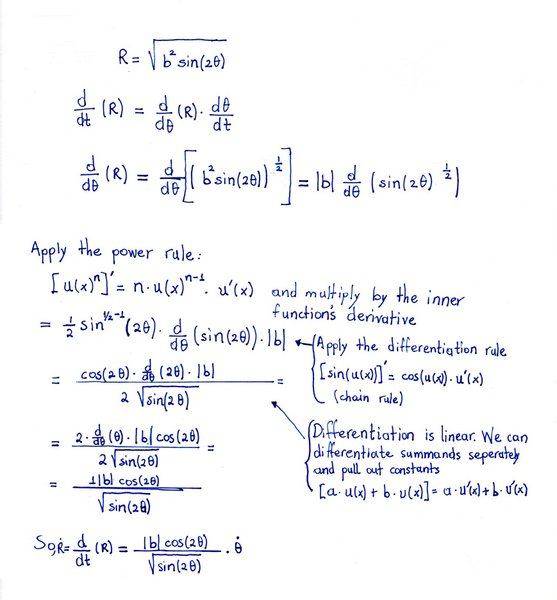 R = √(b² sin(2θ))
d/dt (R) = d/dθ (R) · dθ/dt
d/dθ (R) = d/dθ [(b² sin(2θ))^(1/2)] = |b| d/dθ (sin(2θ)^(1/2))
Apply the power rule:
[u(x)ⁿ]' = n · u(x)ⁿ⁻¹ · u'(x) and multiply by the inner
function's derivative
= 1/2 sin^(1/2-1)(2θ) · d/dθ (sin(2θ)) · |b|
Apply the differentiation rule
= cos(2θ) · d/dθ (2θ) · |b| / 2√sin(2θ) =
[sin(u(x))]' = cos(u(x)) · u'(x)
(chain rule)
= 2 · d/dθ (θ) · |b| cos(2θ) / 2√sin(2θ) =
Differentiation is linear. We can
differentiate summands seperately
and pull out constants
[a · u(x) + b · v(x)] = a · u'(x) + b · v'(x)
= 1|b| cos(2θ) / √sin(2θ)
So, Ṙ = d/dt (R) = |b| cos(2θ) / √sin(2θ) · θ̇